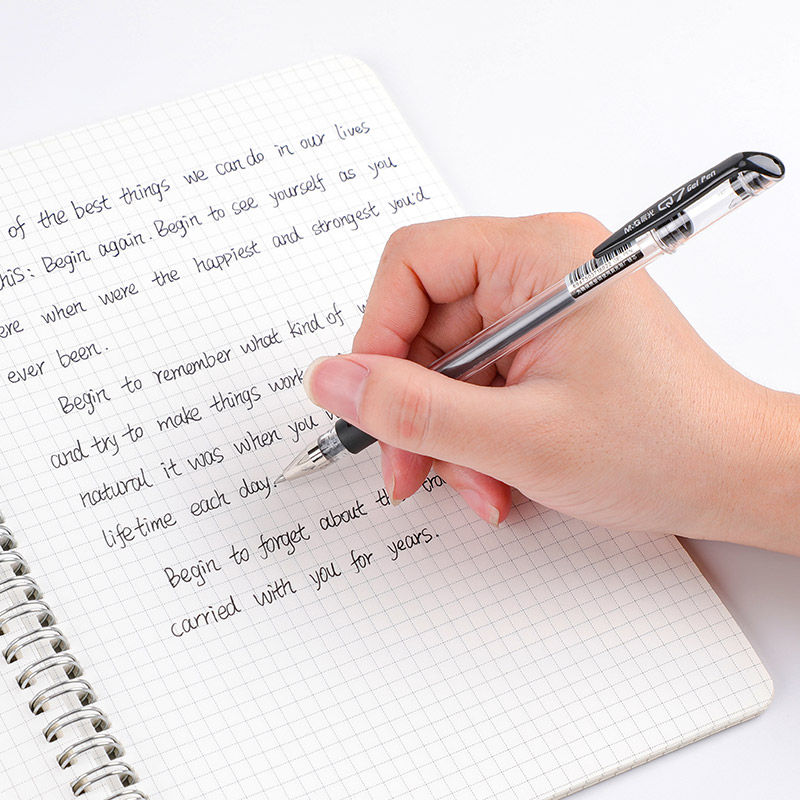 of the best things we can do in our lives
this: Begin again. Begin to see yourself as you
when were the happiest and strongest you'd
ever been.
Begin to remember what kind of
and try to make things work
natural it was when you
lifetime each day.
Begin to forget about the
carried with you for years.
M&G 晨光 Q7 Gel Pen